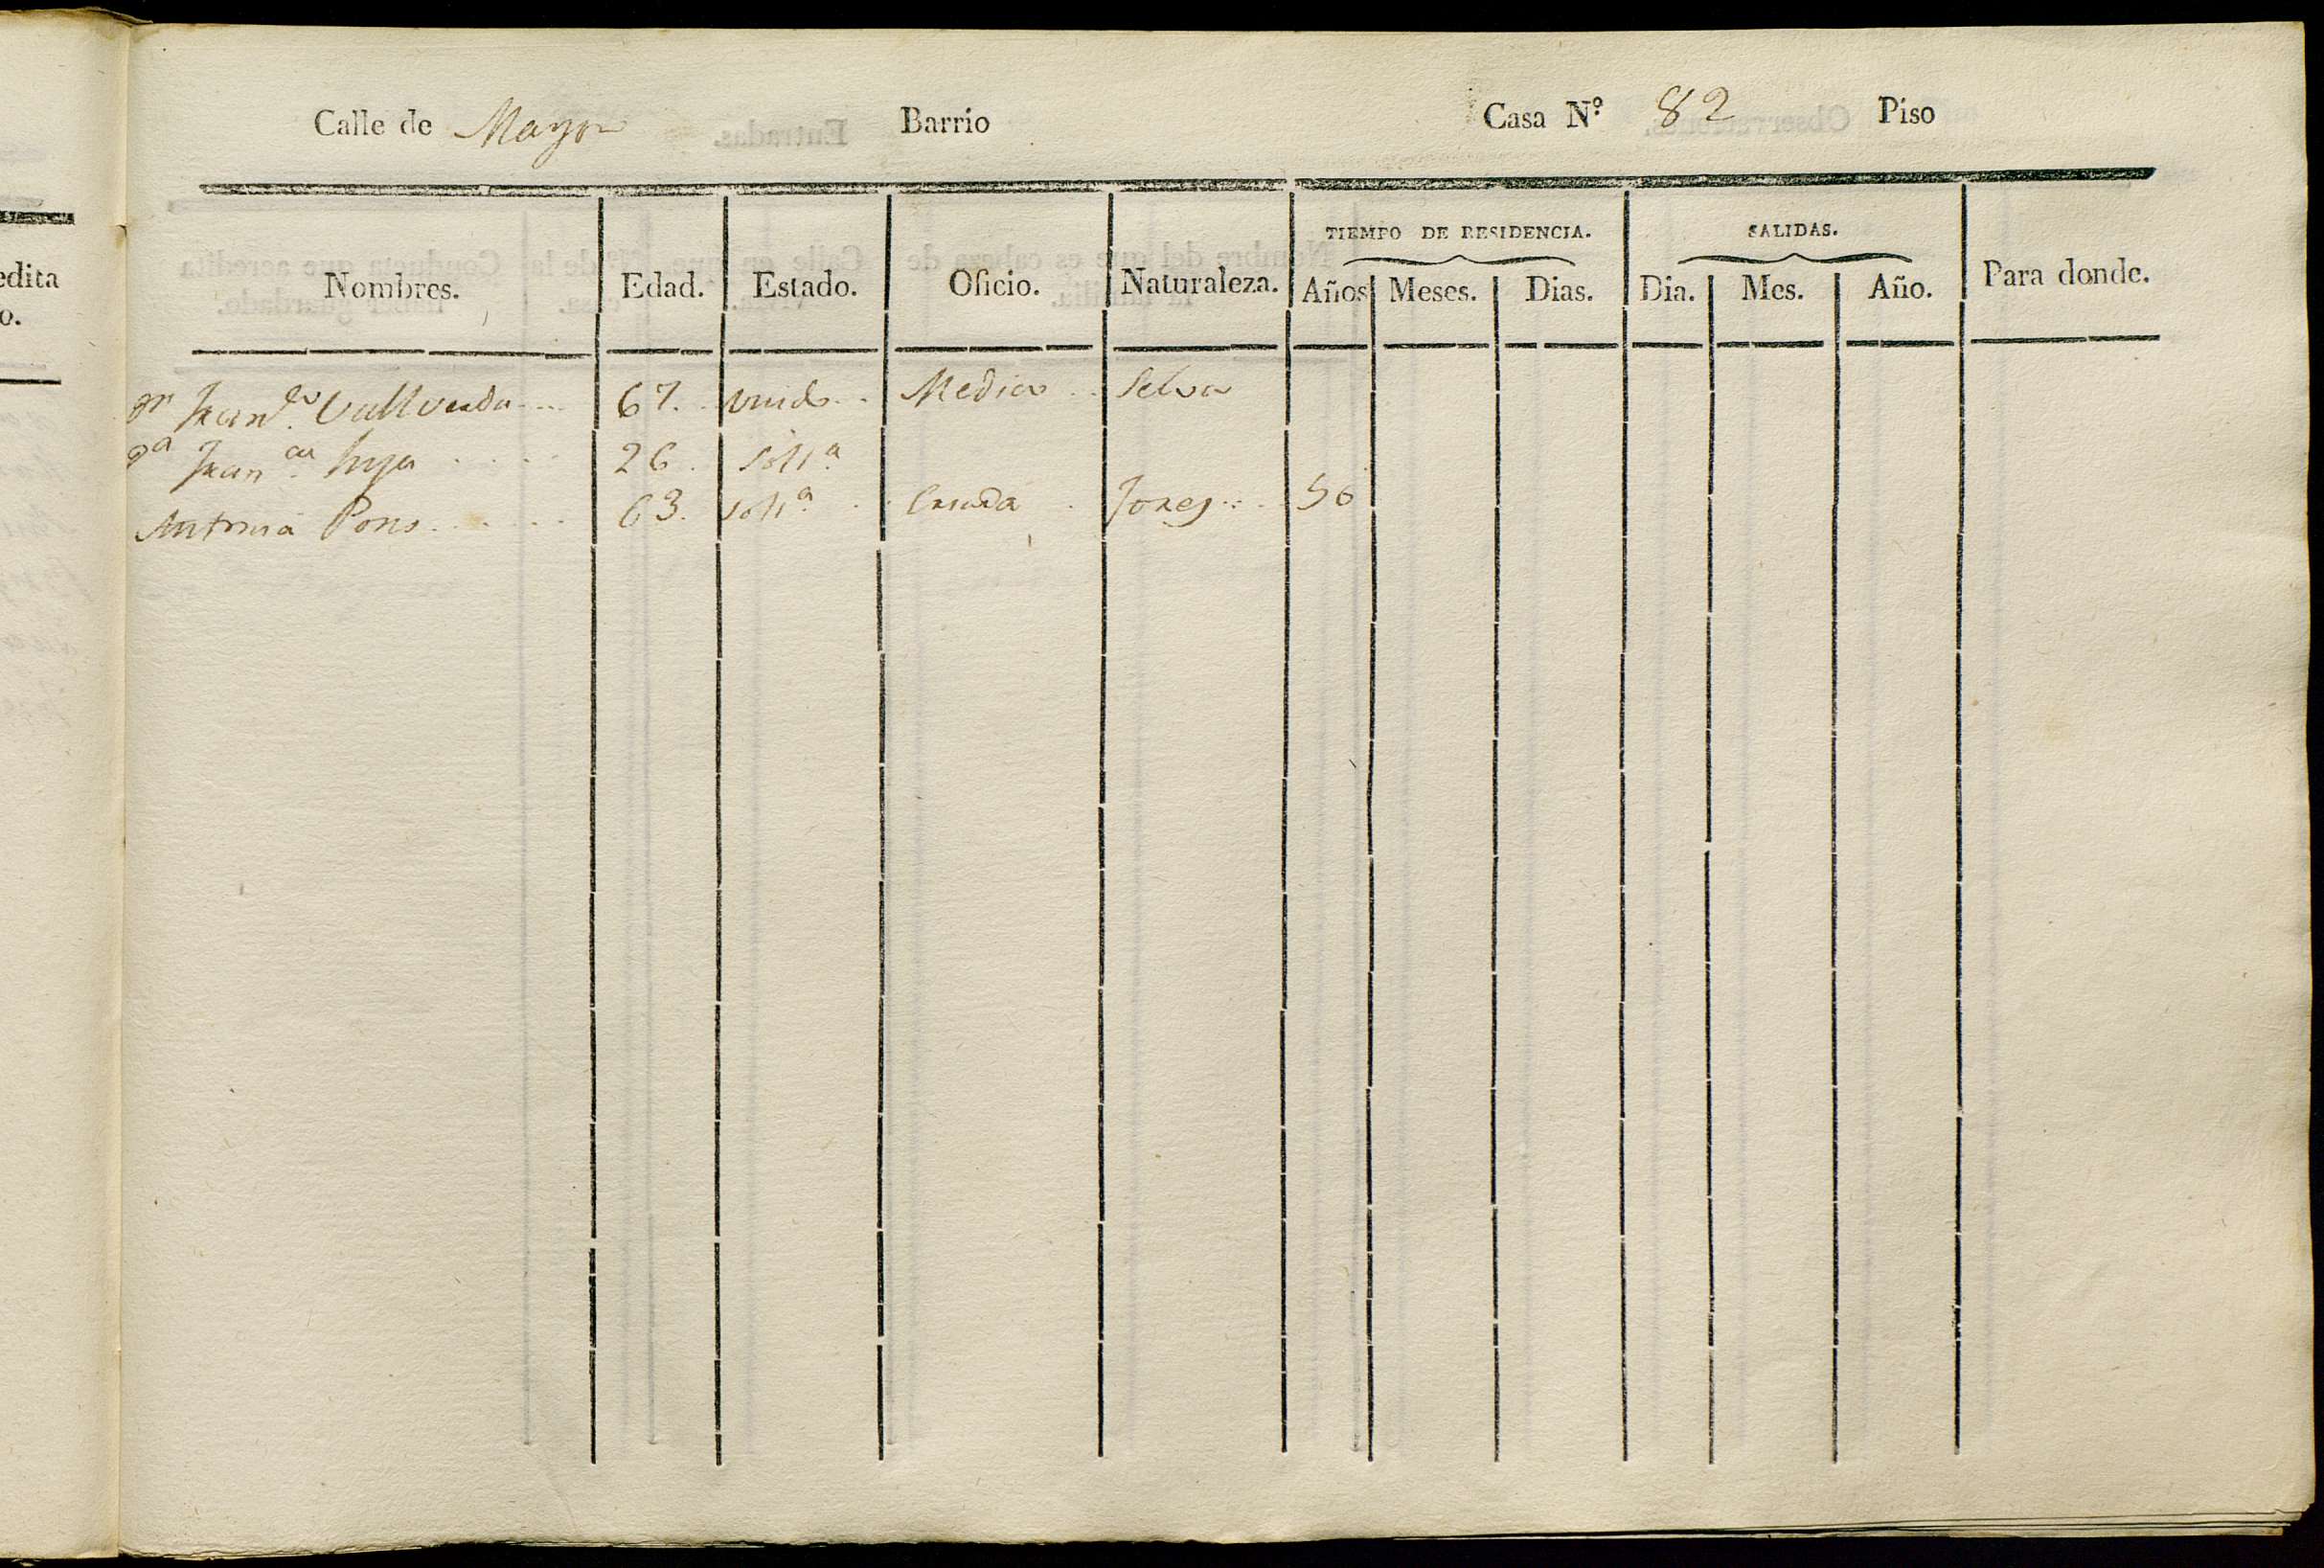 edita
o.
Calle de Mayor Barrio Casa Nº 82 Piso
TIEMPO DE RESIDENCIA. SALIDAS.
Nombres. Edad. Estado. Oficio. Naturaleza. Años Meses. Dias. Dia. Mes. Año. Para donde.
Dn Fran.co Vallverdu.... 67. viudo.. Medico.. Selva
Da Fran.ca hija ..... 26. Solt.a
Antonia Pons...... 63. solt.a . Criada . 56